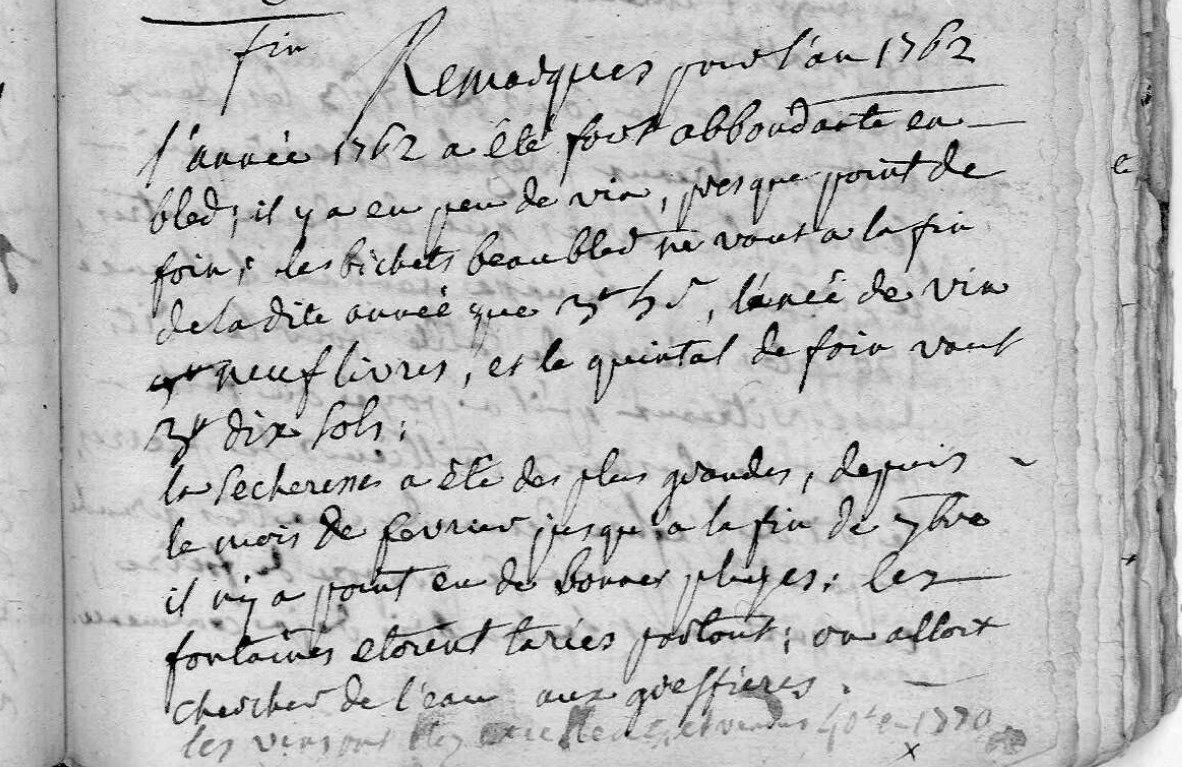 fin
Remarques pour l'an 1762
l'année 1762 a êté fort abbondante en
bled; il y a eu peu de vin, presque point de
foin; les bichets beau bled ne vaut a la fin
de la dite année que 3# 5 s, l'anée de vin
neuf livres, et le quintal de foin vaut
3# dix sols;
la secheresse a êté des plus grandes, depuis
le mois de fevrier jusqu'a la fin de 7bre
il n'y a point eu de bonnes pluyes; les
fontaines etoient taries partout; on alloit
chercher de l'eau aux
les vins ont etez et vendus en 1770